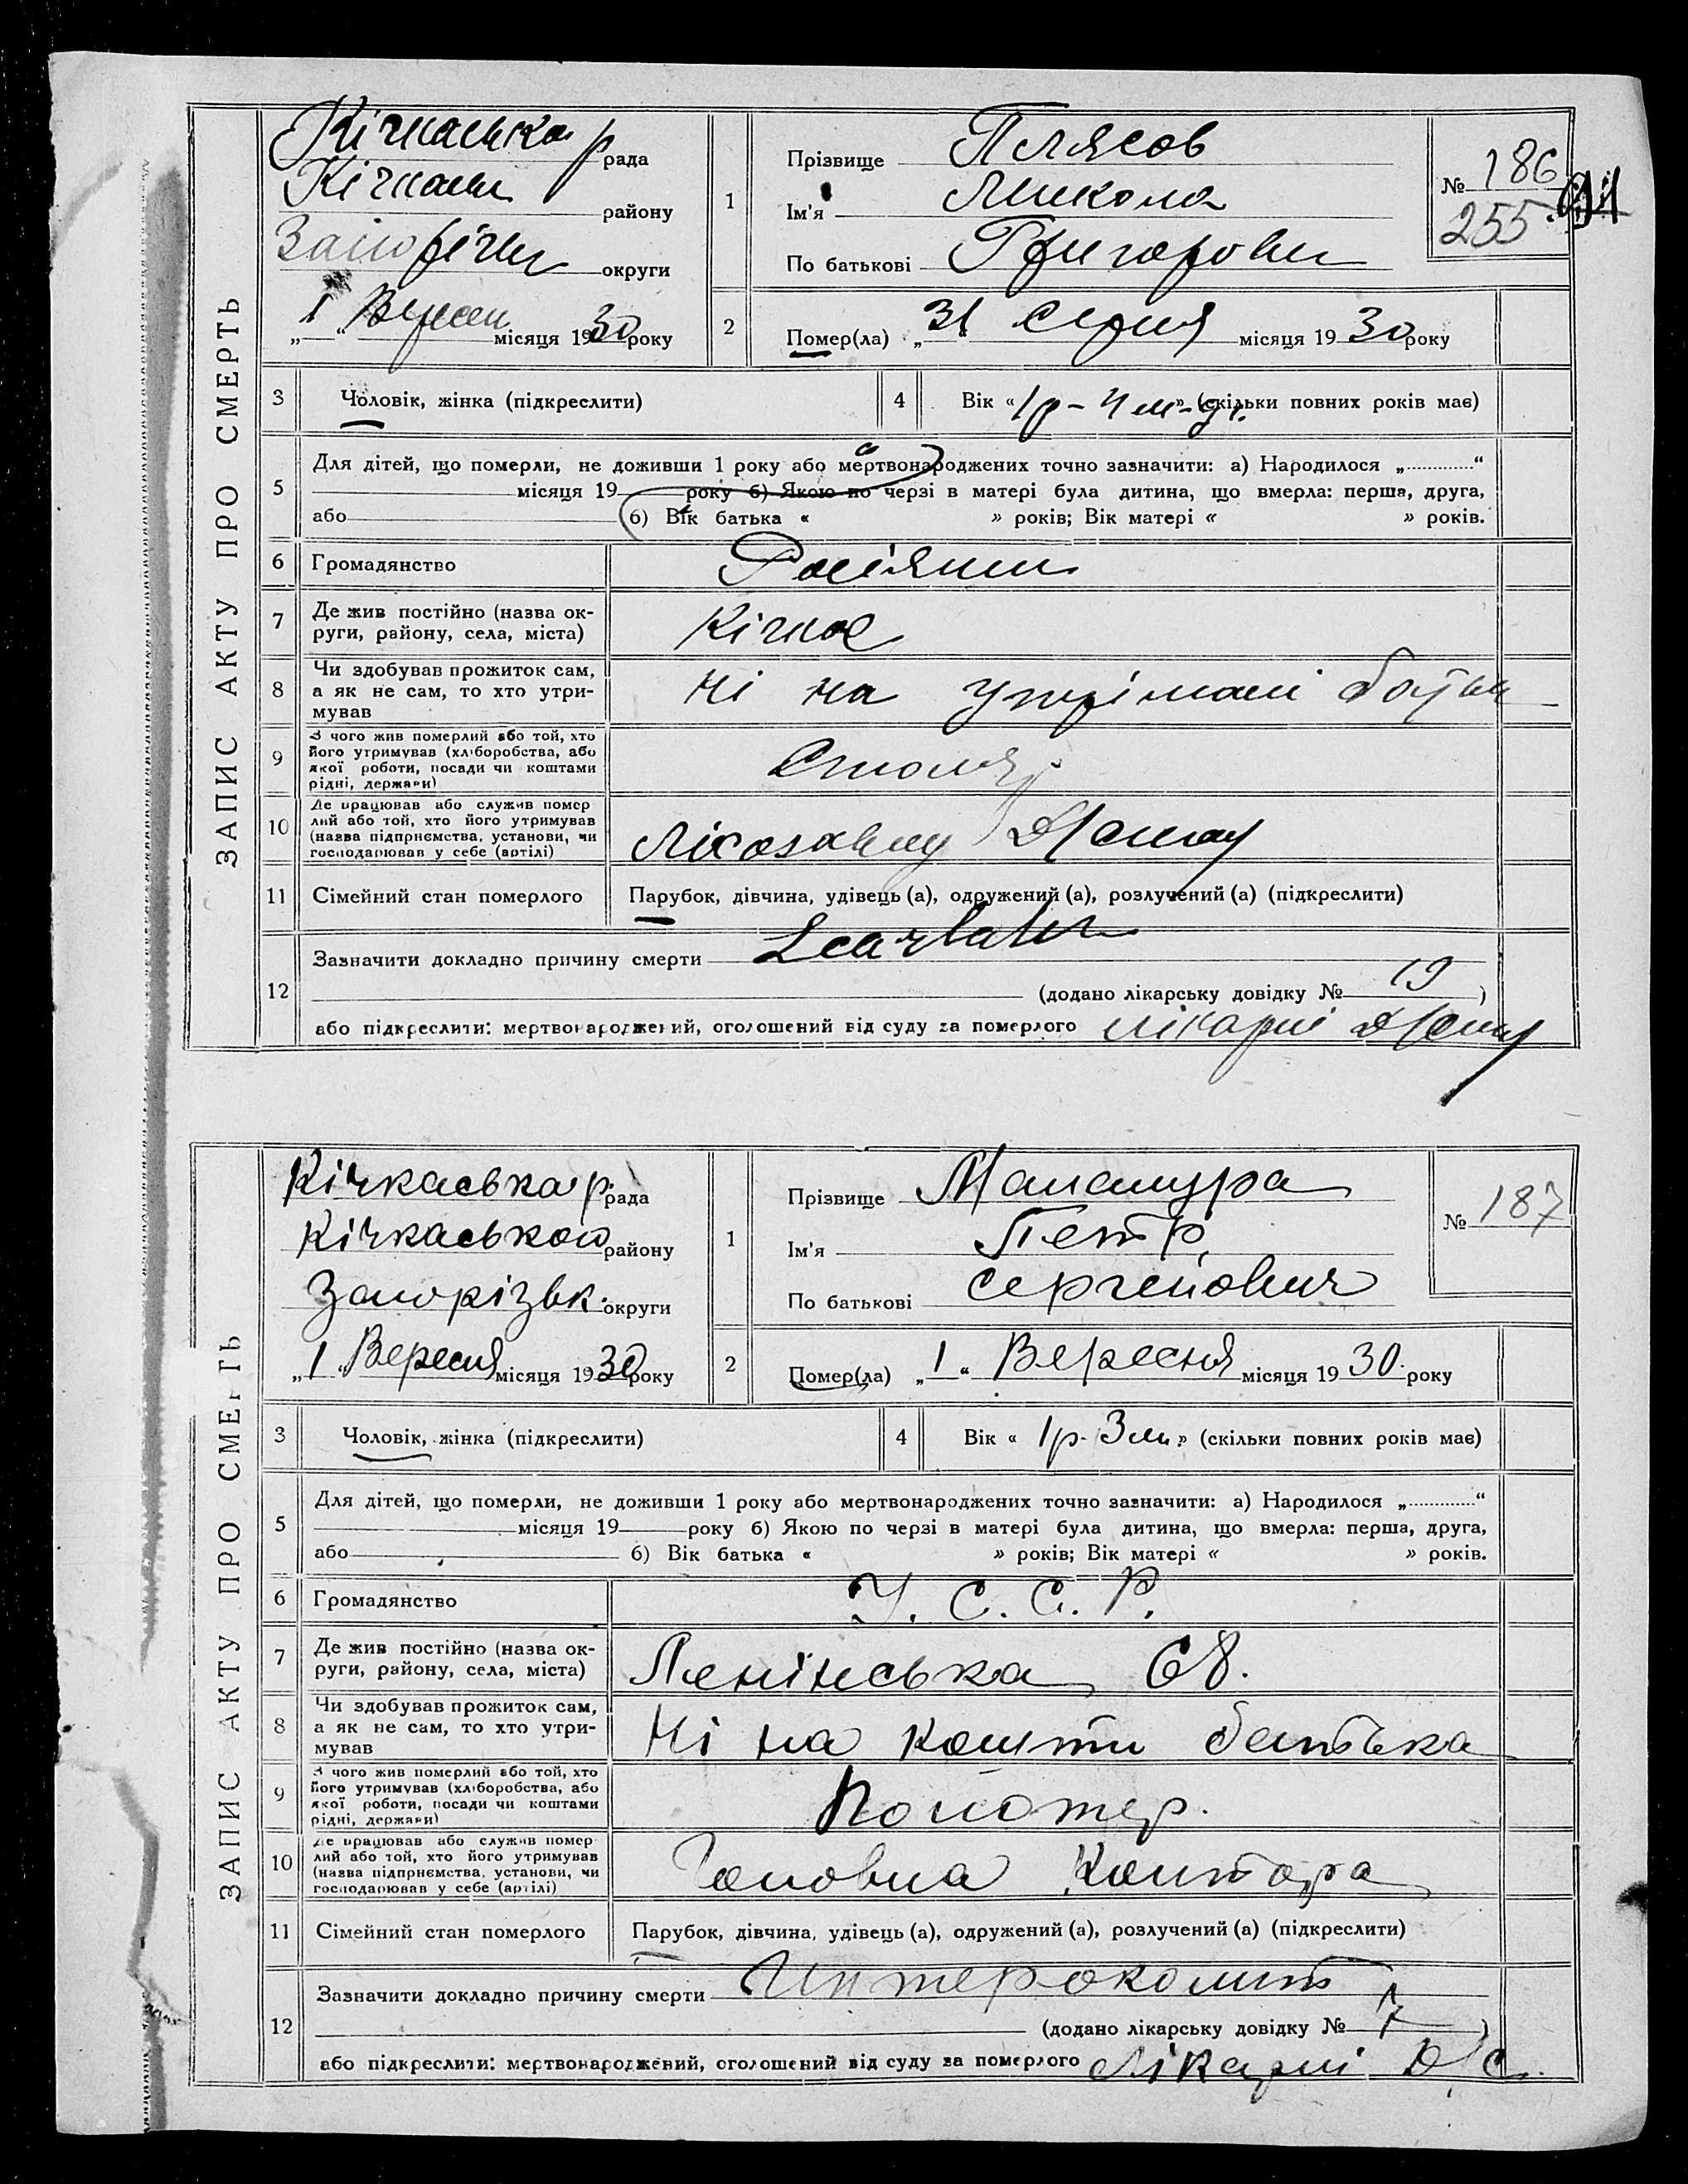 ЗАПИС АКТУ ПРО СМЕРТЬ
Кічкаська р рада
Кічкась району
округи
„1“ Вересн місяця 1930 року
1
Прізвище Плясов
Ім'я Микола
По батькові Григорович
№ 186
255
2
Помер(ла) „31“ Серпня місяця 1930 року
3
Чоловік, жінка (підкреслити)
4
Вік «1р - 4 м -» (скільки повних років має)
5
Для дітей, що померли, не доживши 1 року або мертвонароджених точно зазначити: а) Народилося „ “
місяця 19 року б) Якою по черзі в матері була дитина, що вмерла: перша, друга,
або б) Вік батька « » років; Вік матері « » років.
6
Громадянство Росіянин
7
Де жив постійно (назва ок-
руги, району, села, міста) Кічкас
8
Чи здобував прожиток сам,
а як не сам, то хто утри-
мував Ні на утрімані батьк
9
З чого жив померлий або той, хто
його утримував (хліборобства, або
якої роботи, посади чи коштами
рідні, держави) Столяр
10
Де працював або служив помер
лий або той, хто його утримував
(назва підприємства, установи, чи
господарював у себе (артілі)
11
Сімейний стан померлого Парубок, дівчина, удівець (а), одружений (а), розлучений (а) (підкреслити)
12
Зазначити докладно причину смерти
(додано лікарську довідку № 19)
або підкреслити: мертвонароджений, оголошений від суду за померлого лікарні
ЗАПИС АКТУ ПРО СМЕРТЬ
Кічкаська р. рада
Кічкаського району
Запорізьк. округи
„1“ Вересня місяця 1930 року
1
Прізвище Манамура
Ім'я Петр
По батькові Сергейович
№ 187
2
Помер(ла) „1“ Вересня місяця 1930. року
3
Чоловік, жінка (підкреслити)
4
Вік «1р. 3 м.» (скільки повних років має)
5
Для дітей, що померли, не доживши 1 року або мертвонароджених точно зазначити: а) Народилося „ “
місяця 19 року б) Якою по черзі в матері була дитина, що вмерла: перша, друга,
або б) Вік батька « » років; Вік матері « » років.
6
Громадянство У. С. С. Р.
7
Де жив постійно (назва ок-
руги, району, села, міста) Ленінська 68.
8
Чи здобував прожиток сам,
а як не сам, то хто утри-
мував Ні на кошти батька
9
З чого жив померлий або той, хто
його утримував (хліборобства, або
якої роботи, посади чи коштами
рідні, держави)
10
Де працював або служив помер
лий або той, хто його утримував
(назва підприємства, установи, чи
господарював у себе (артілі) Головна Контора
11
Сімейний стан померлого Парубок, дівчина, удівець (а), одружений (а), розлучений (а) (підкреслити)
12
Зазначити докладно причину смерти Интероколит
(додано лікарську довідку №)
або підкреслити: мертвонароджений, оголошений від суду за померлого Лікарні Д/С.